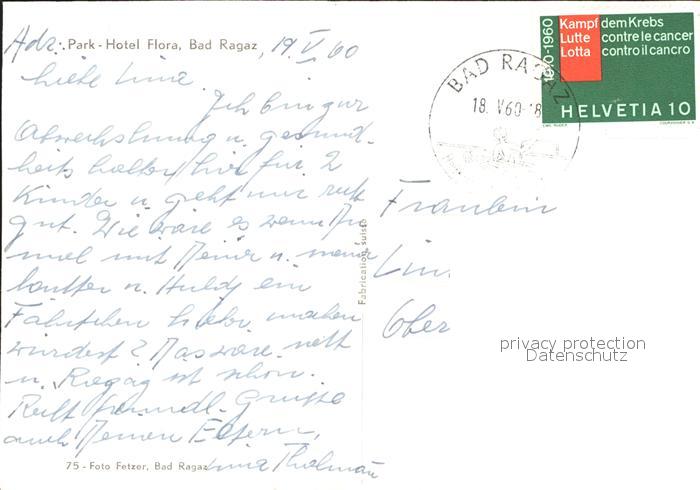 Adr. Park - Hotel Flora, Bad Ragaz, 19.V.60
Liebe Lina.
Ich bin zur
Abwechslung u. gesund-
heits halber hier für 2
Kinder u. geht mir recht
gut. Wie wäre es wenn Du
mal mit Deiner u. meiner
u. Huldy ein
Fährtchen hieher machen
würdest? Das wäre nett
u. Ragaz ist schön.
Recht freundl. Grüsse
auch Deinen Eltern,
Lina
75 - Foto Fetzer, Bad Ragaz
Fabrication suisse
BAD RAGAZ
18. V 60-18
1910-1960
Kampf dem Krebs
Lutte contre le cancer
Lotta contro il cancro
HELVETIA 10
Fräulein
Lin
Ober
privacy protection
Datenschutz